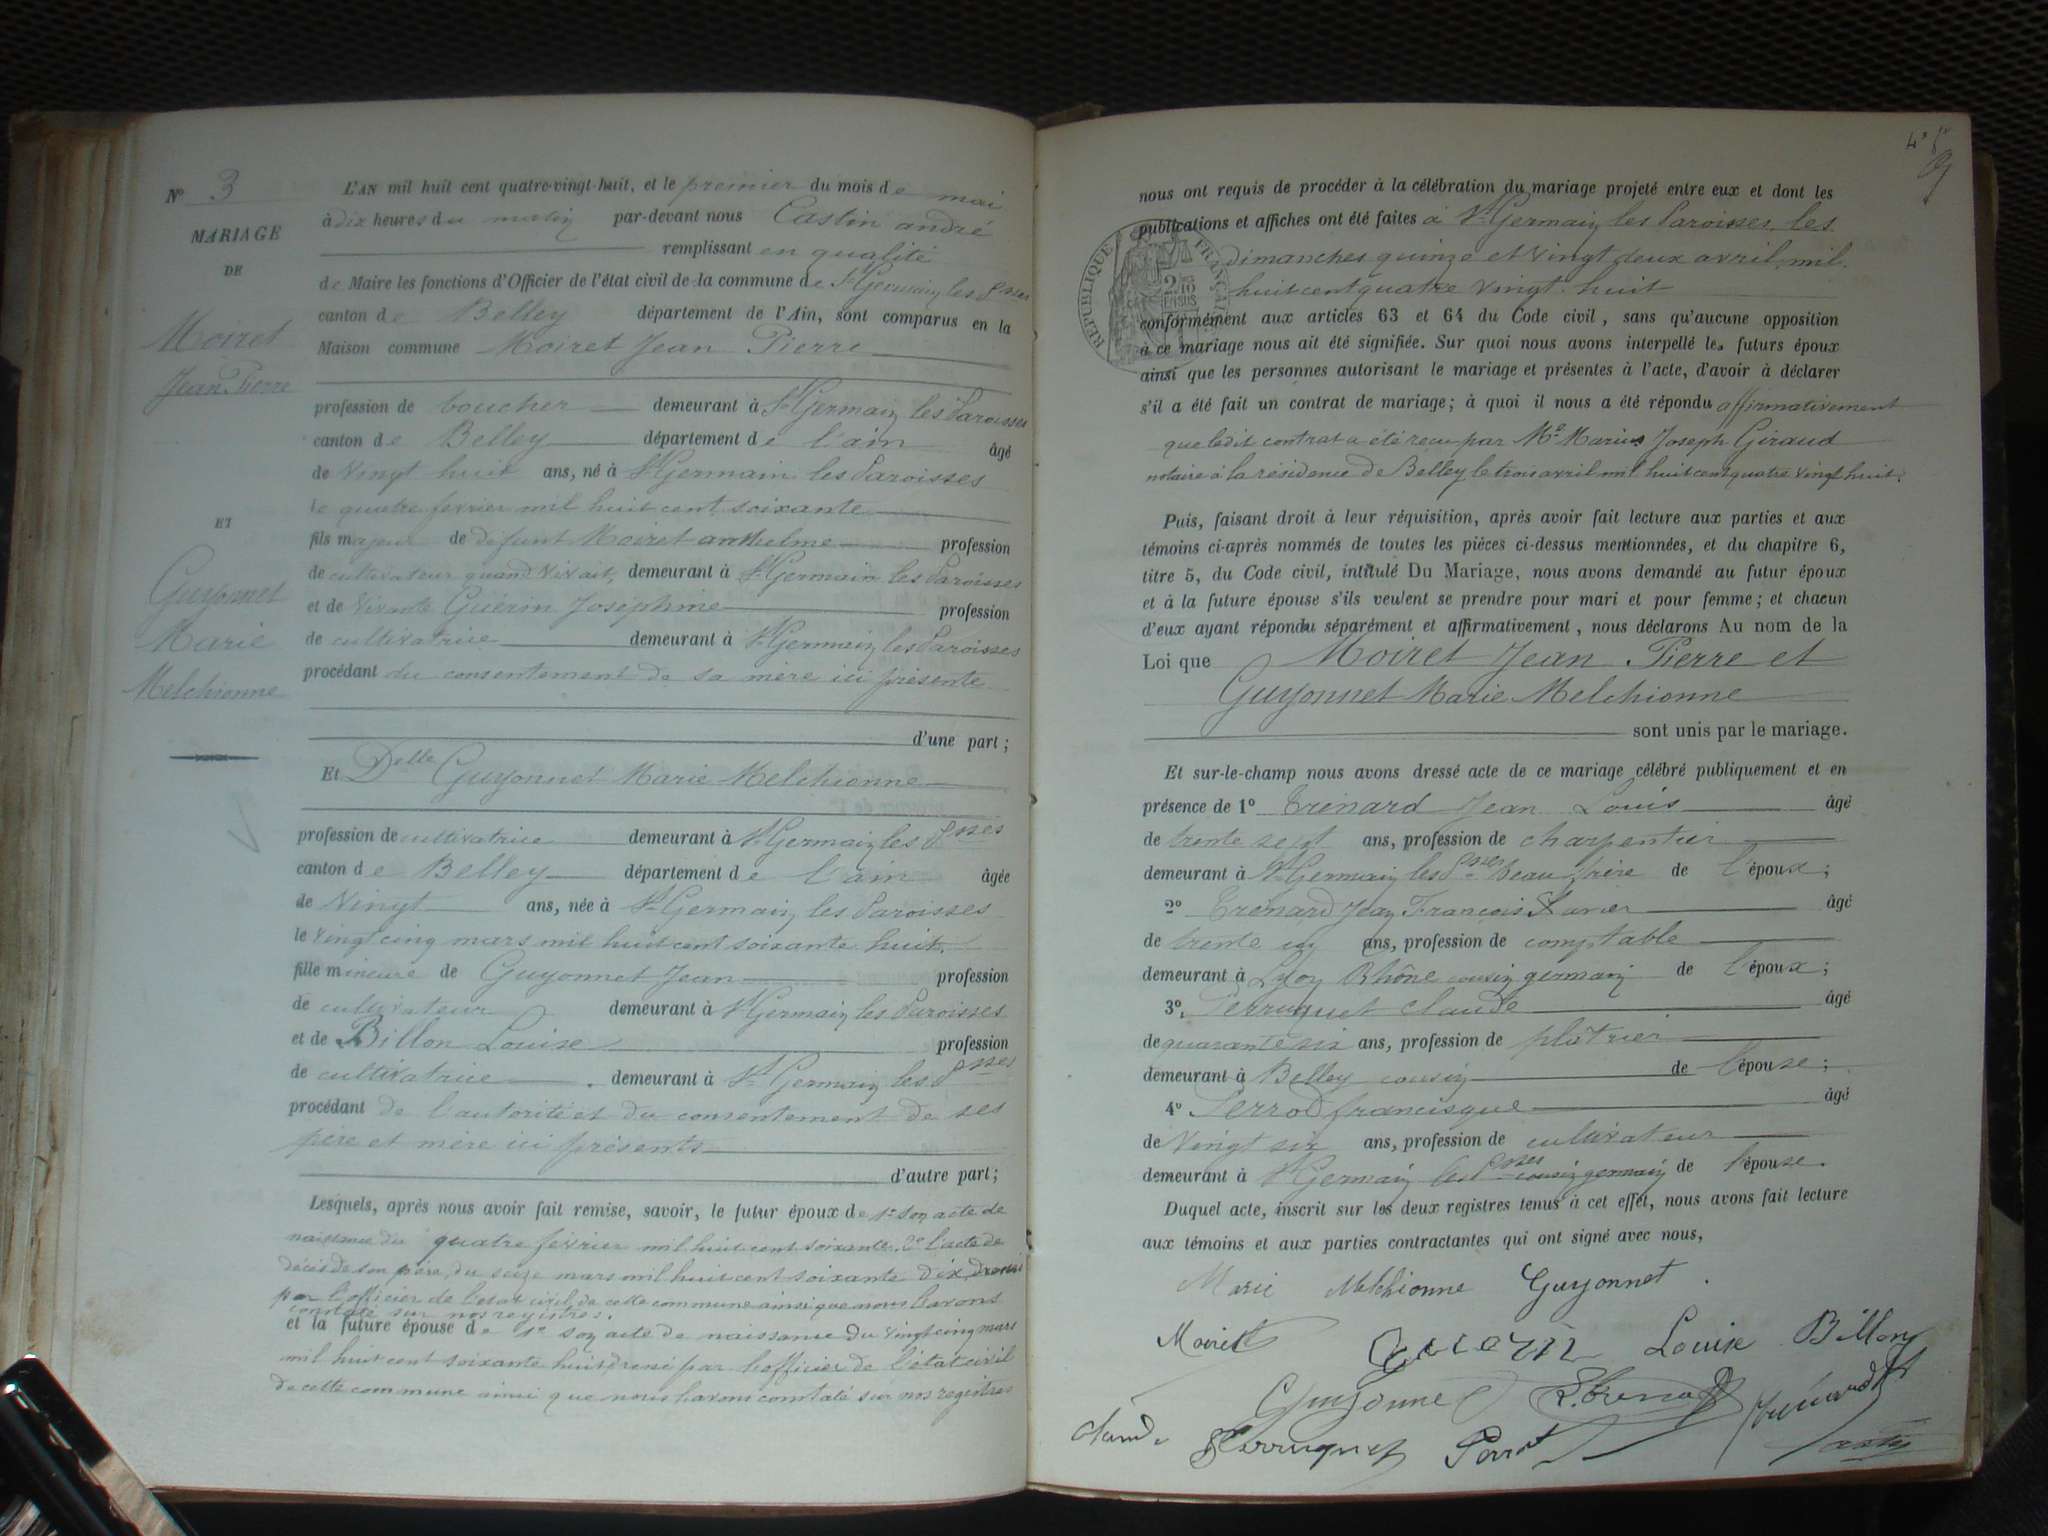 N° 3
MARIAGE
DE
Moiret
Jean Pierre
ET
Guyonnet
Marie
Melchionne
L'AN mil huit cent quatre-vingt-huit, et le premier du mois de mai
à dix heures du matin par-devant nous Castin andré
remplissant en qualité
de Maire les fonctions d'Officier de l'état civil de la commune de St Germain les Psses
canton de Belley département de l'Ain, sont comparus en la
Maison commune Moiret Jean Pierre
profession de boucher demeurant à St Germain les Paroisses
canton de Belley département de l'ain âgé
de Vingt huit ans, né à St Germain les Paroisses
le quatre fevrier mil huit cent soixante
fils majeur de défunt Moiret anthelme profession
de cultivateur quand vivait, demeurant à St Germain les Paroisses
et de Vivante Guérin Joséphine profession
de cultivatrice demeurant à St Germain les Paroisses
procédant du consentement de sa mère ici présente
d'une part;
Et Delle Guyonnet Marie Melchionne
profession de cultivatrice demeurant à St Germain les Psses
canton de Belley département de l'ain âgée
de Vingt ans, née à St Germain les Paroisses
le Vingt cinq mars mil huit cent soixante huit.
fille mineure de Guyonnet Jean profession
de cultivateur demeurant à St Germain les Paroisses
et de Billon Louise profession
de cultivatrice demeurant à St Germain les Psses
procédant de l'autorité et du consentement de ses
père et mère ici présents
d'autre part;
Lesquels, après nous avoir fait remise, savoir, le futur époux de 1° son acte de
naissance du quatre février mil huit cent soixante. 2° l'acte de
décès de son père, du seize mars mil huit cent soixante dix, dressés
par l'officier de l'état civil de cette commune ainsi que nous l'avons
constaté sur nos registres.
et la future épouse de 1° son acte de naissance du vingt cinq mars
mil huit cent soixante huit, dressé par l'officier de l'état civil
de cette commune ainsi que nous l'avons constaté sur nos registres
nous ont requis de procéder à la célébration du mariage projeté entre eux et dont les
publications et affiches ont été faites à St Germain les Paroisses, les
dimanches quinze et Vingt deux avril mil
huit cent quatre vingt huit
RÉPUBLIQUE FRANÇAISE
conformément aux articles 63 et 64 du Code civil, sans qu'aucune opposition
à ce mariage nous ait été signifiée. Sur quoi nous avons interpellé les futurs époux
ainsi que les personnes autorisant le mariage et présentes à l'acte, d'avoir à déclarer
s'il a été fait un contrat de mariage; à quoi il nous a été répondu affirmativement
que ledit contrat a été reçu par Me Marius Joseph Giraud
notaire à la résidence de Belley le trois avril mil huit cent quatre vingt huit.
Puis, faisant droit à leur réquisition, après avoir fait lecture aux parties et aux
témoins ci-après nommés de toutes les pièces ci-dessus mentionnées, et du chapitre 6,
titre 5, du Code civil, intitulé Du Mariage, nous avons demandé au futur époux
et à la future épouse s'ils veulent se prendre pour mari et pour femme; et chacun
d'eux ayant répondu séparément et affirmativement, nous déclarons Au nom de la
Loi que Moiret Jean Pierre et
Guyonnet Marie Melchionne
sont unis par le mariage.
Et sur-le-champ nous avons dressé acte de ce mariage célébré publiquement et en
présence de 1° Trénard Jean Louis âgé
de trente sept ans, profession de charpentier
demeurant à St Germain les Psses beau frère de l'époux;
2° Trénard Jean François Xavier âgé
de trente un ans, profession de comptable
demeurant à Lyon Rhône cousin germain de l'époux;
3° Perruquet Claude âgé
de quarante six ans, profession de plâtrier
demeurant à Belley cousin de l'épouse;
4° Perrod francisque âgé
de Vingt six ans, profession de cultivateur
demeurant à St Germain les Psses cousin germain de l'épouse.
Duquel acte, inscrit sur les deux registres tenus à cet effet, nous avons fait lecture
aux témoins et aux parties contractantes qui ont signé avec nous,
Marie Melchionne Guyonnet.
Moiret Guerin Louise Billon
Guyonnet Trenard
Claude Perruquet Perrod